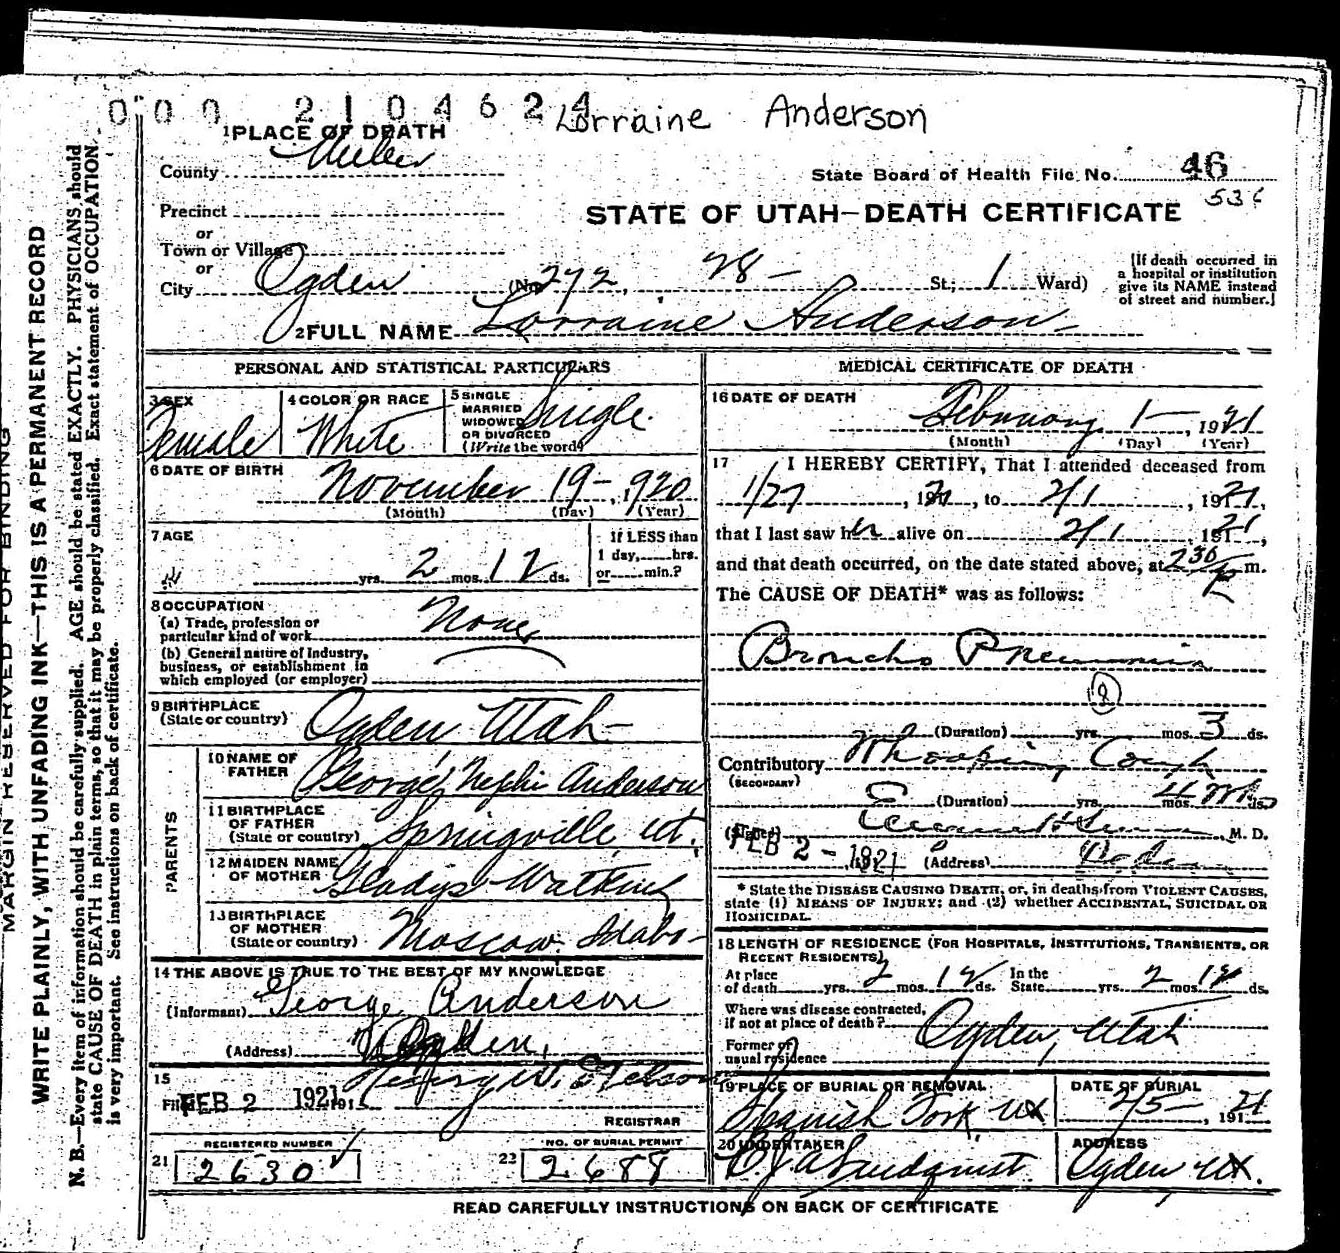 0 0 0 2 1 0 4 6 2 4 Lorraine Anderson
1 PLACE OF DEATH
County
State Board of Health File No. 46
536
Precinct
STATE OF UTAH—DEATH CERTIFICATE
or
Town or Village
or
City Ogden (No. 272, 28 – St.; 1 Ward)
[If death occurred in
a hospital or institution
give its NAME instead
of street and number.]
2 FULL NAME Lorraine Anderson
PERSONAL AND STATISTICAL PARTICULARS
3 SEX
Female
4 COLOR OR RACE
White
5 SINGLE
MARRIED
WIDOWED
OR DIVORCED
(Write the word)
Single.
6 DATE OF BIRTH
November 19–, 1920
(Month) (Day) (Year)
7 AGE
yrs. 2 mos. 12 ds.
If LESS than
1 day, hrs.
or min.?
8 OCCUPATION
(a) Trade, profession or
particular kind of work None
(b) General nature of Industry,
business, or establishment in
which employed (or employer)
9 BIRTHPLACE
(State or country) Ogden Utah–
PARENTS
10 NAME OF
FATHER George Nephi Anderson
11 BIRTHPLACE
OF FATHER
(State or country) Springville, Ut.
12 MAIDEN NAME
OF MOTHER Gladys Watkins
13 BIRTHPLACE
OF MOTHER
(State or country) Moscow, Idaho–
14 THE ABOVE IS TRUE TO THE BEST OF MY KNOWLEDGE
(Informant) George Anderson
(Address) Ogden,
15
Filed FEB 2 1921 191 Henry W. Nelson
REGISTRAR
REGISTERED NUMBER
21 2630
NO. OF BURIAL PERMIT
22 2688
MEDICAL CERTIFICATE OF DEATH
16 DATE OF DEATH
February 1–, 1921
(Month) (Day) (Year)
17 I HEREBY CERTIFY, That I attended deceased from
1/27, 1921, to 2/1, 1921,
that I last saw her alive on 2/1, 1921,
and that death occurred, on the date stated above, at 2 30 P m.
The CAUSE OF DEATH* was as follows:
Broncho Pneumonia
(Duration) yrs. mos. 3 ds.
Contributory Whooping Cough
(SECONDARY)
(Duration) yrs. mos. 4 wks ds.
(Signed) M. D.
FEB 2 - 1921 (Address) Ogden
* State the DISEASE CAUSING DEATH, or, in deaths from VIOLENT CAUSES,
state (1) MEANS OF INJURY; and (2) whether ACCIDENTAL, SUICIDAL OR
HOMICIDAL.
18 LENGTH OF RESIDENCE (FOR HOSPITALS, INSTITUTIONS, TRANSIENTS, OR
RECENT RESIDENTS)
At place
of death yrs. 2 mos. 12 ds. In the
State yrs. 2 mos. 12 ds.
Where was disease contracted,
if not at place of death?
Former or
usual residence Ogden, Utah
19 PLACE OF BURIAL OR REMOVAL
Spanish Fork, Ut
DATE OF BURIAL
2/5–, 1921
20 UNDERTAKER
Lindquist
ADDRESS
Ogden, Ut.
READ CAREFULLY INSTRUCTIONS ON BACK OF CERTIFICATE
MARGIN RESERVED FOR BINDING
WRITE PLAINLY, WITH UNFADING INK—THIS IS A PERMANENT RECORD
N. B.—Every item of information should be carefully supplied. AGE should be stated EXACTLY. PHYSICIANS should
state CAUSE OF DEATH in plain terms, so that it may be properly classified. Exact statement of OCCUPATION
is very important. See instructions on back of certificate.